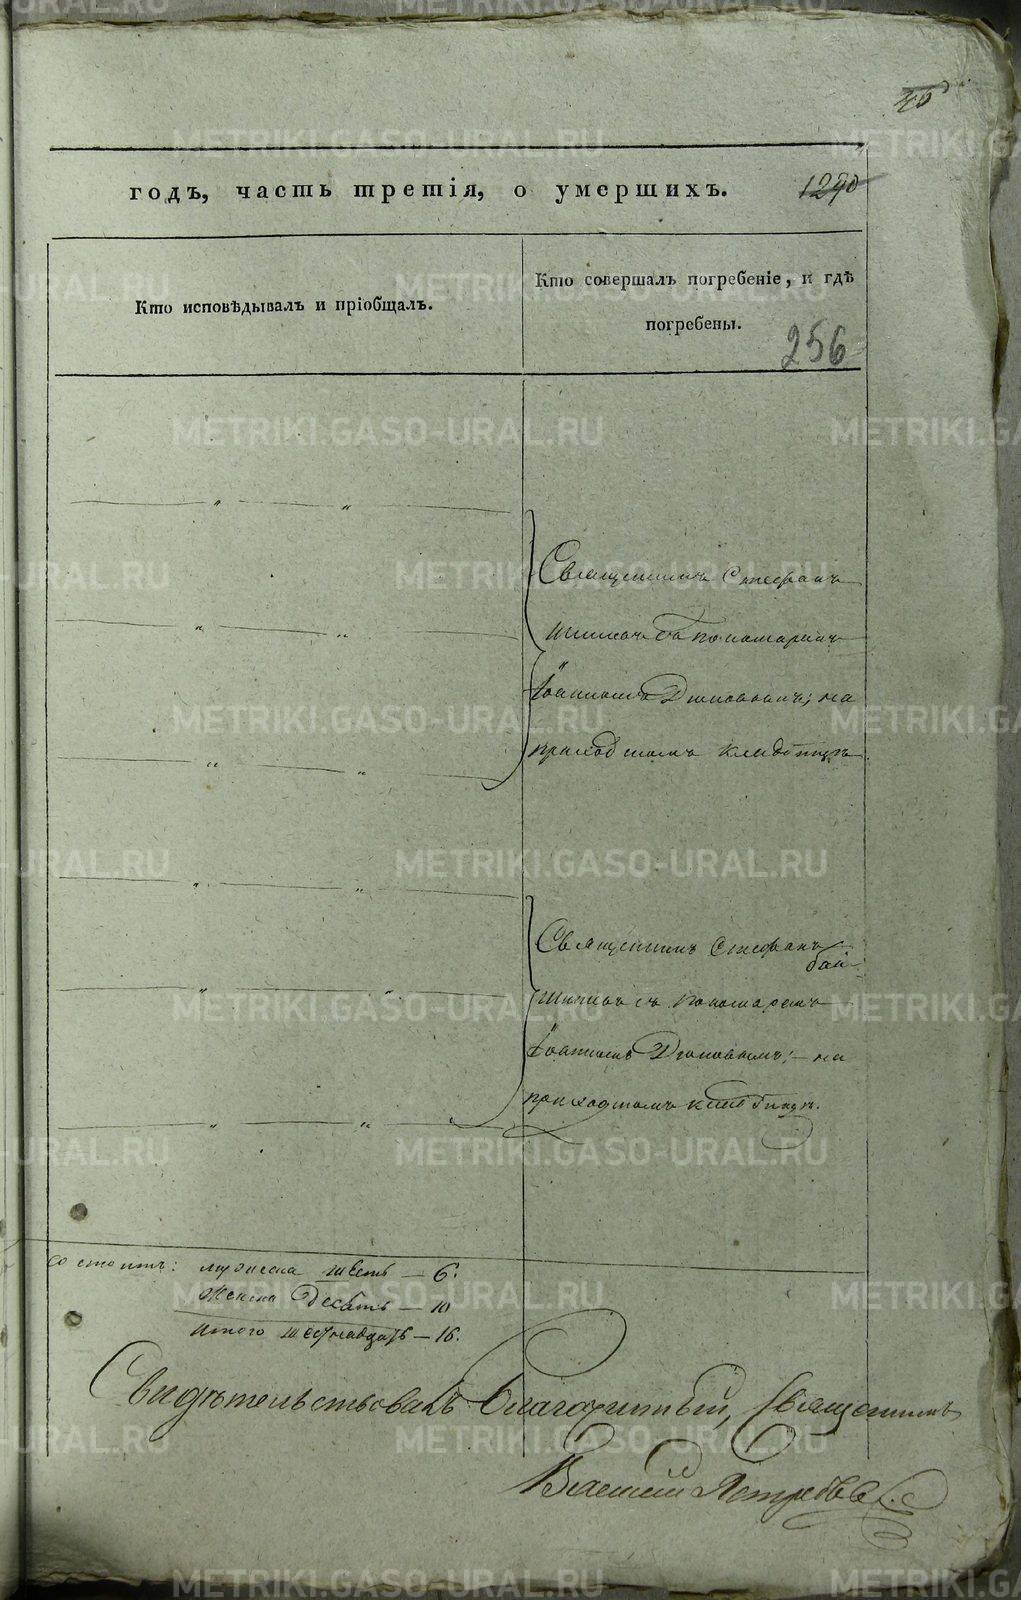 годъ, часть третія, о умершихъ.
1290
256
Кто исповѣдывалъ и пріобщалъ.
Кто совершалъ погребеніе, и гдѣ
погребены.
Священникъ Стефанъ
съ пономаремъ
Іоанномъ на
приходскомъ кладбищѣ
Священникъ Стефанъ
съ пономаремъ
Іоанномъ на
приходскомъ кладбищѣ.
состоитъ: мужеска шесть — 6.
Женска Десять — 10
итого шестнадцать — 16.
Свидѣтельствовалъ Благочинный, Священникъ
Василій Ястребовъ
METRIKI.GASO-URAL.RU